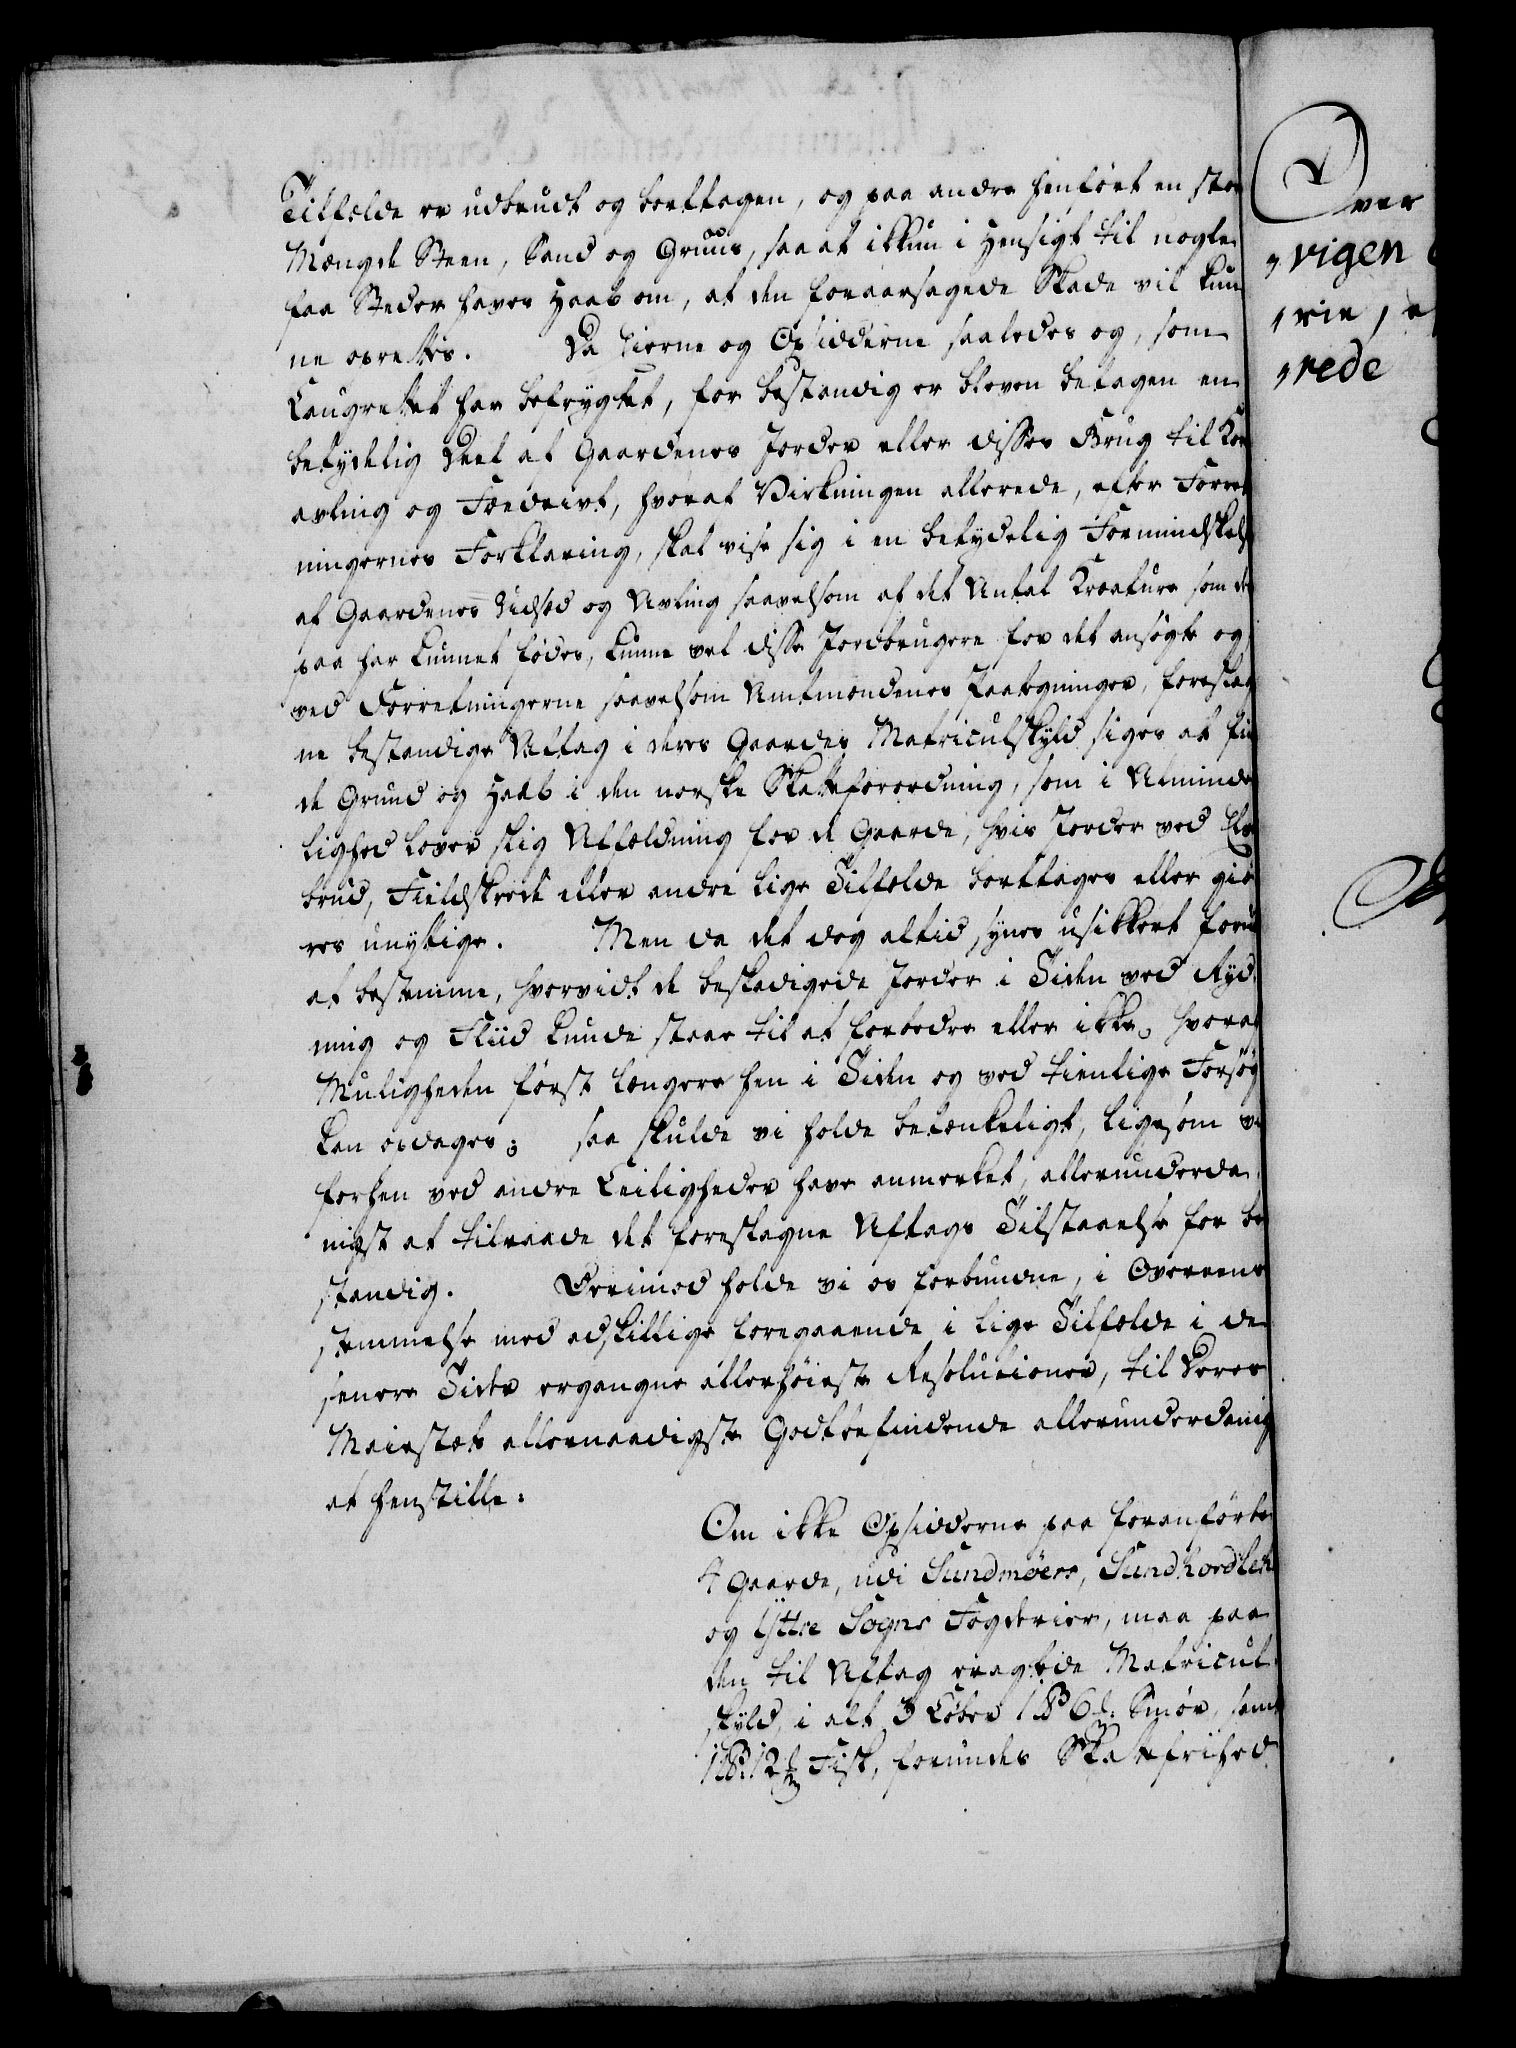 Tilfælde er udbrudt og borttagen, og paa andre henført en stor
Mængde Steen, Sand og Gruus, saa at ikkun i Hensigt til nogle
faa Steder haves Haab om, at den foraarsagede Skade vil kun
ne oprettes. Da Eierne og Opsidderne saaledes og, som
Laugrettet har befrygtet, for bestandig er bleven betagen en
betydelig Deel af Gaardenes Jorder eller disses Brug til Korn
avling og Foedrivt, hvoraf Virkningen allerede, efter Forret
ningernes Forklaring, skal vise sig i en betydelig Formindskelse
af Gaardenes Udsæd og Avling saavelsom af det Antal Kreature som der
paa har kunnet fødes, kunne vel disse Jordbrugere for det ansøgte og
ved Forretningerne saavelsom Amtmændenes Paategninger, foreslag
ne bestandige Aftag i deres Gaardes Matriculskyld siges at fin
de Grund og Haab i den norske Skatteforordning, som i Alminde
lighed lover slig Affældning for de Gaarde, hvis Jorder ved Elve
brud, Fieldskreed eller andre lige Tilfælde borttages eller giø
res unyttige. Men da det dog altid synes usikkert forud
at bestemme, hvorvidt de beskadigede Jorder i Tiden ved Ryd
ning og Fliid kunde staae til at forbedre eller ikke, hvoraf
Muligheden først længere hen i Tiden og ved tienlige Forsøg
kan opdages; saa skulde vi holde betænkeligt, ligesom vi
forhen ved andre Leiligheder have anmerket, allerunderda
nigst at tilraade det foreslagne Aftags Tilstaaelse for be
standig. Derimod holde vi os forbundne, i Overeens
stemmelse med adskillige foregaaende i lige Tilfælde i de
senere Tider ergangne allerhøieste Resolutioner, til Deres
Majestæts allernaadigste Godtbefindende allerunderdanig
at henstille:
Om ikke Opsidderne paa foranførte
4 Gaarde, udi Sundmøers, Sundhordlehn
og Yttre Sogns Fogderier, maa paa
den til Aftag eragtede Matricul
skyld, i alt 3 Løber 1 6 Smør, samt
1 12 Fisk, forundes Skattefrihed
ver
vigen
rie,
rede